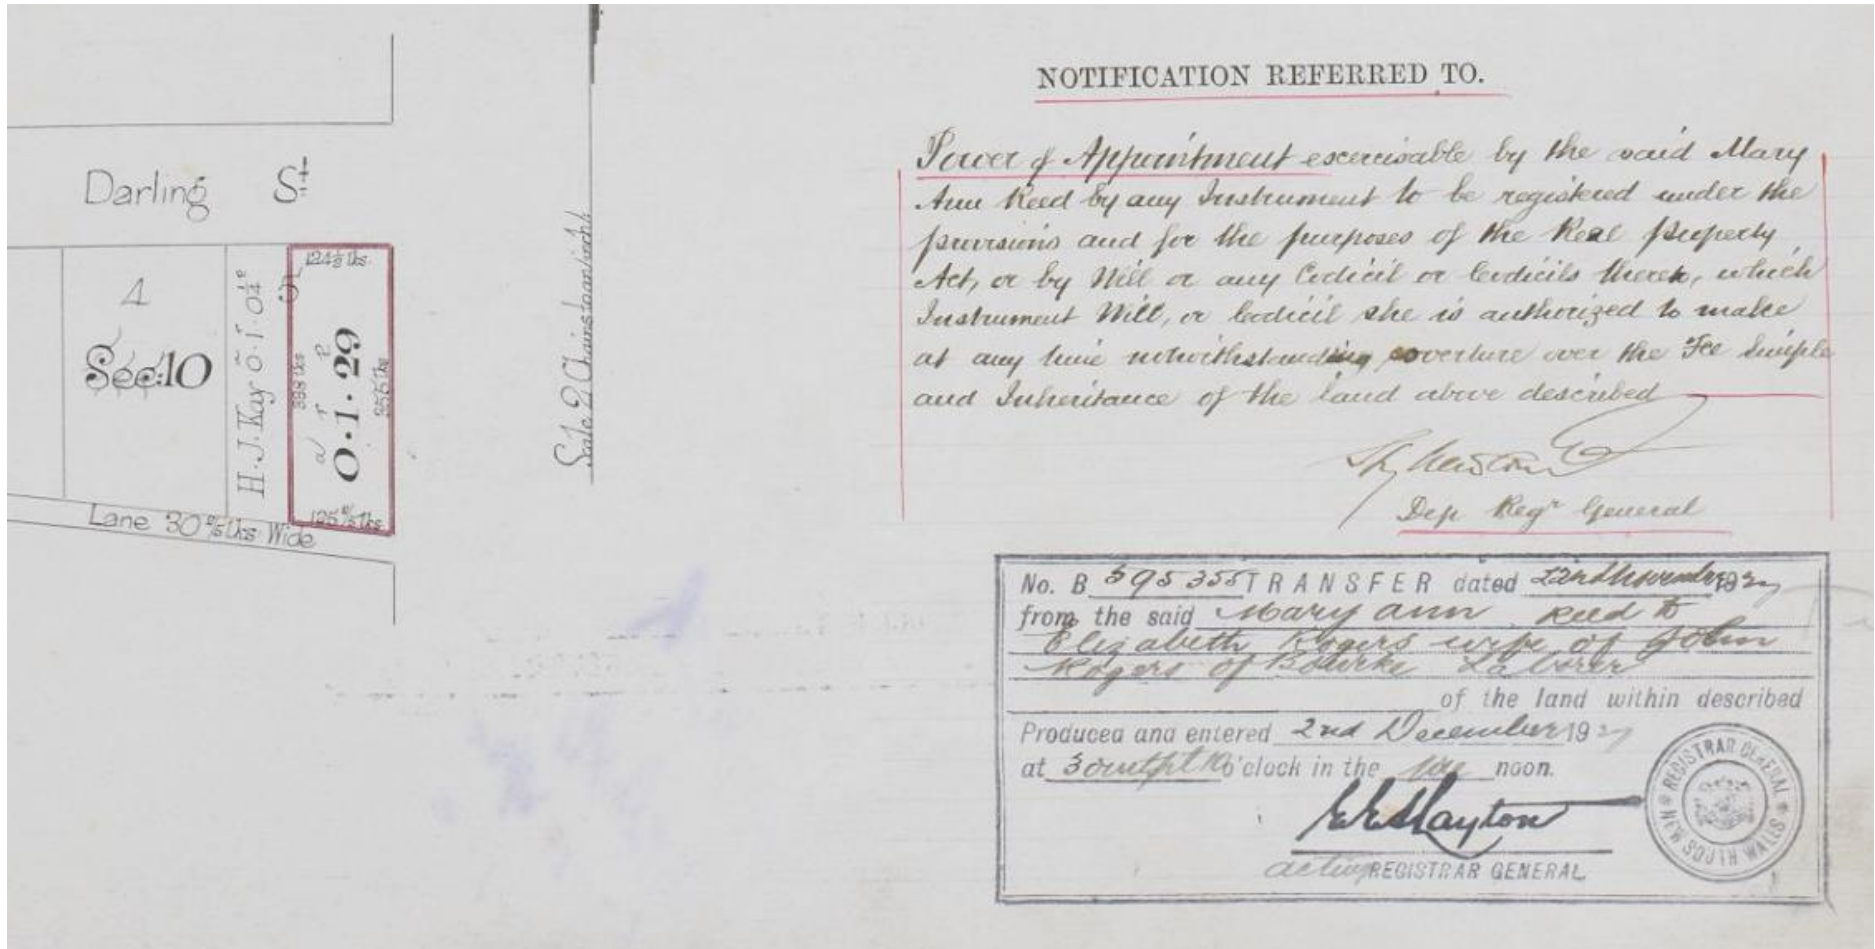 Darling St
4
Sec: 10
H. J. Kay 0. 1. 0¼
124½ lks
398 lks
a r p
0. 1. 29
Lane 30 lks Wide
Scale 2 Chains to an inch
NOTIFICATION REFERRED TO.
Power of Appointment excercisable by the said Mary
Ann Reed by any Instrument to be registered under the
provisions and for the purposes of the Real Property
Act, or by Will or any Codicil or Codicils thereto, which
Instrument Will, or Codicil she is authorized to make
at any time notwithstanding coverture over the Fee Simple
and Inheritance of the land above described
Dep Regr General
No. B 595355 TRANSFER dated 22nd November 1927
from the said Mary Ann Reed to
Elizabeth Rogers wife of John
Rogers of Bourke Laborer
of the land within described
Produced and entered 2nd December 1927
at o'clock in the noon.
acting REGISTRAR GENERAL
REGISTRAR GENERAL
NEW SOUTH WALES